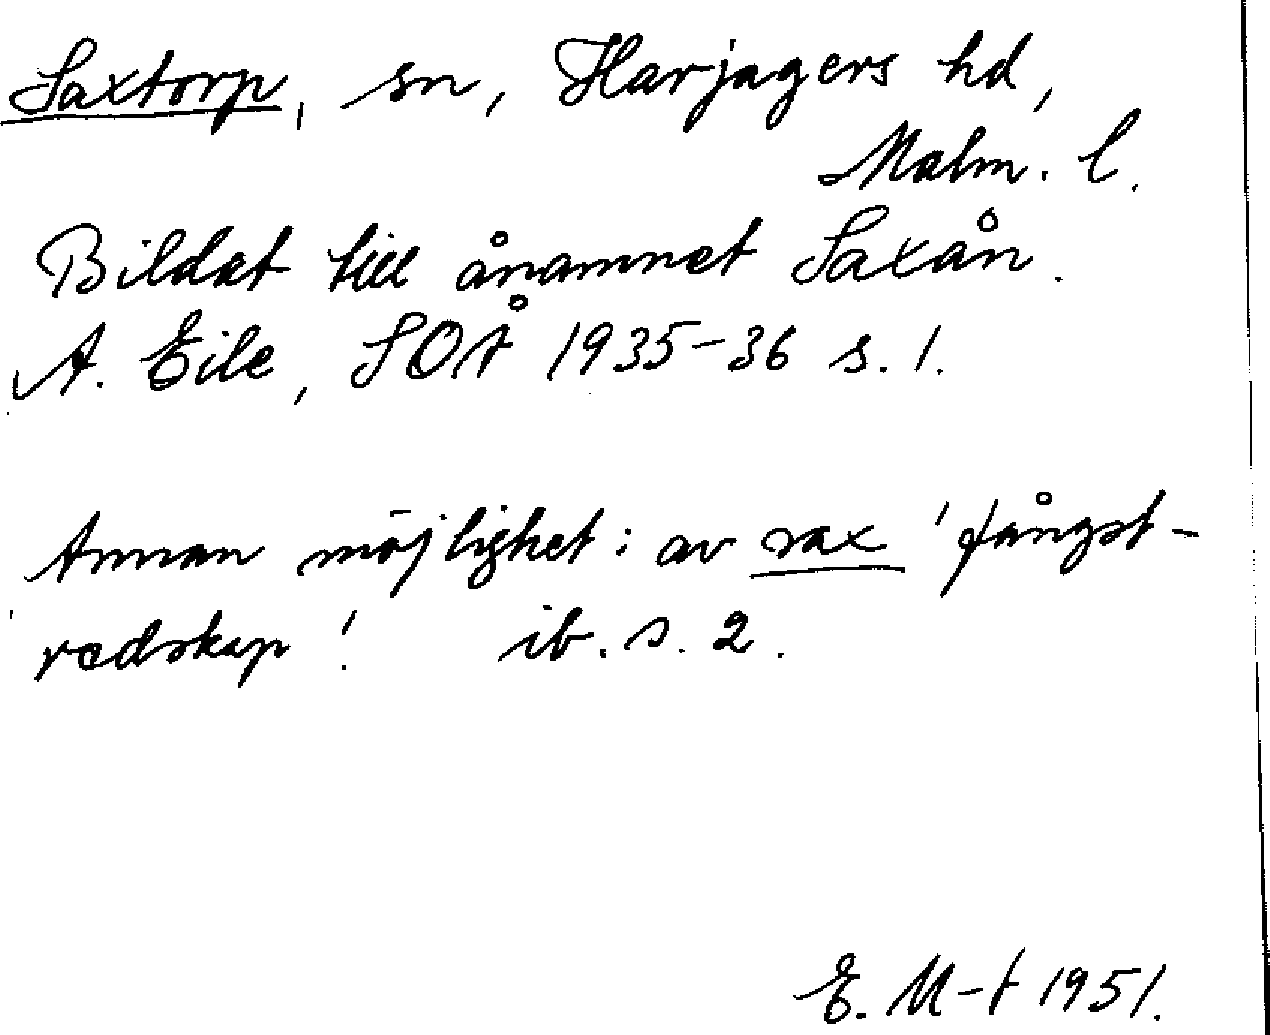 Saxtorp, sn, Harjagers hd,
Malm. l.
Bildat till ånamnet Saxån.
A. Eile, SOÅ 1935-36 s. 1.
Annan möjlighet: av sax 'fångst-
redskap'. ib. s. 2.
E. M-t 1951.